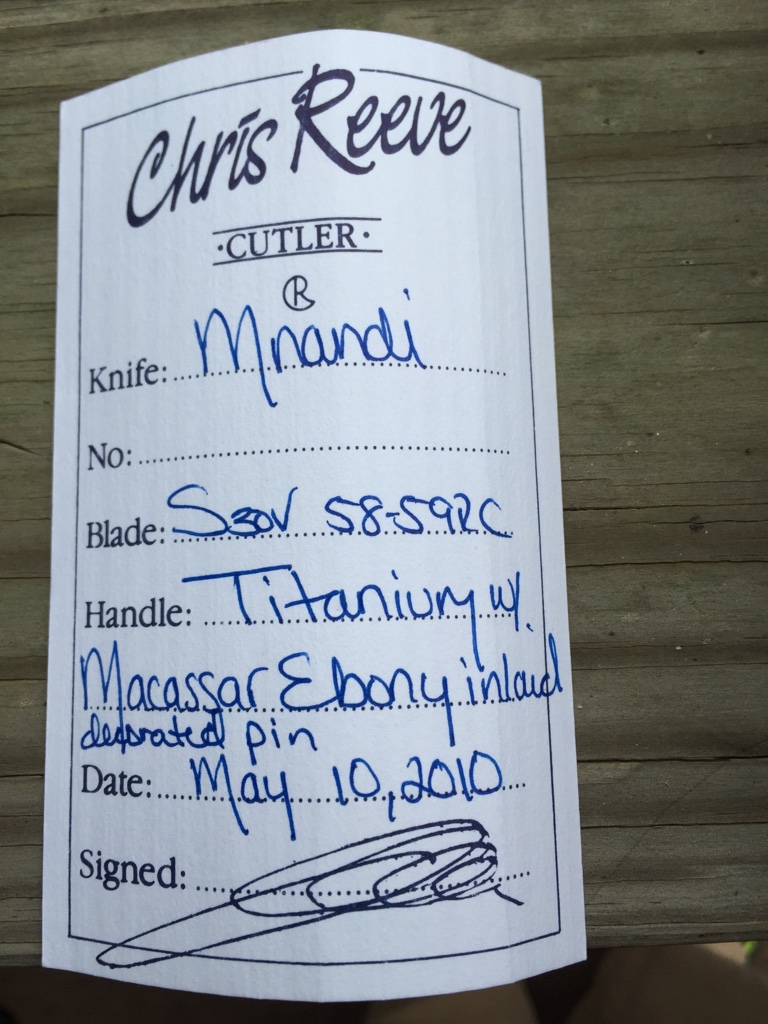 Chris Reeve
·CUTLER·
R
Knife: Mnandi
No:
Blade: S30V 58-59RC
Handle: Titanium w/
Macassar Ebony inlaid
decorated pin
Date: May 10, 2010
Signed: